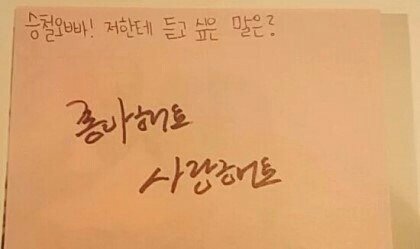 승철오빠! 저한테 듣고 싶은 말은?
좋아해요
사랑해요